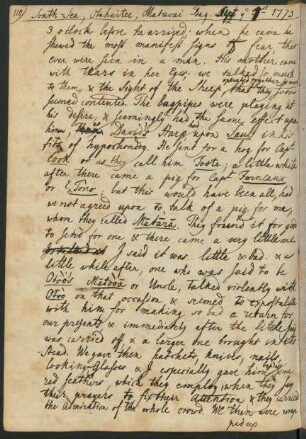 110) South Sea, Otahaitee, Matavai Bay 1773
3 o'clock before he arrived; when he came he
shewed the most manifest signs of fear, that
ever were seen in a man. His mother came
with tears in her Eyes; we talked so much
to them, & the sight of the Sheep that they soon
seemed contented. The bagpipes were playing at
his desire, & seemingly had the same effect upon
him, David's Harp upon Saul in his
fits of hypochondry. He sent for a hog for Capt
Cook or as they call him Toote; a little while
after there came a pig for Capt Furneaux
or Tono; but this would have been all, had
we not agreed upon to talk of a pig for me,
whom they called Matara. They found it for good
to send for one & there came a very little one
I said it was little & bad. & a
little while after, one who was said to be
Otoo's or Uncle, talked violently with
Otoo on that occasion & seemed to expostulate
with him for making so bad a return for
our present & immediately after the little pig
was carried off & a larger one brought in its
stead. We gave them hatchets, knives, nails,
looking Glasses & I especially gave him some
red feathers, which they employ when they say
their prayers to fix their Attention & they carried
the Admiration of the whole crowd. We then were